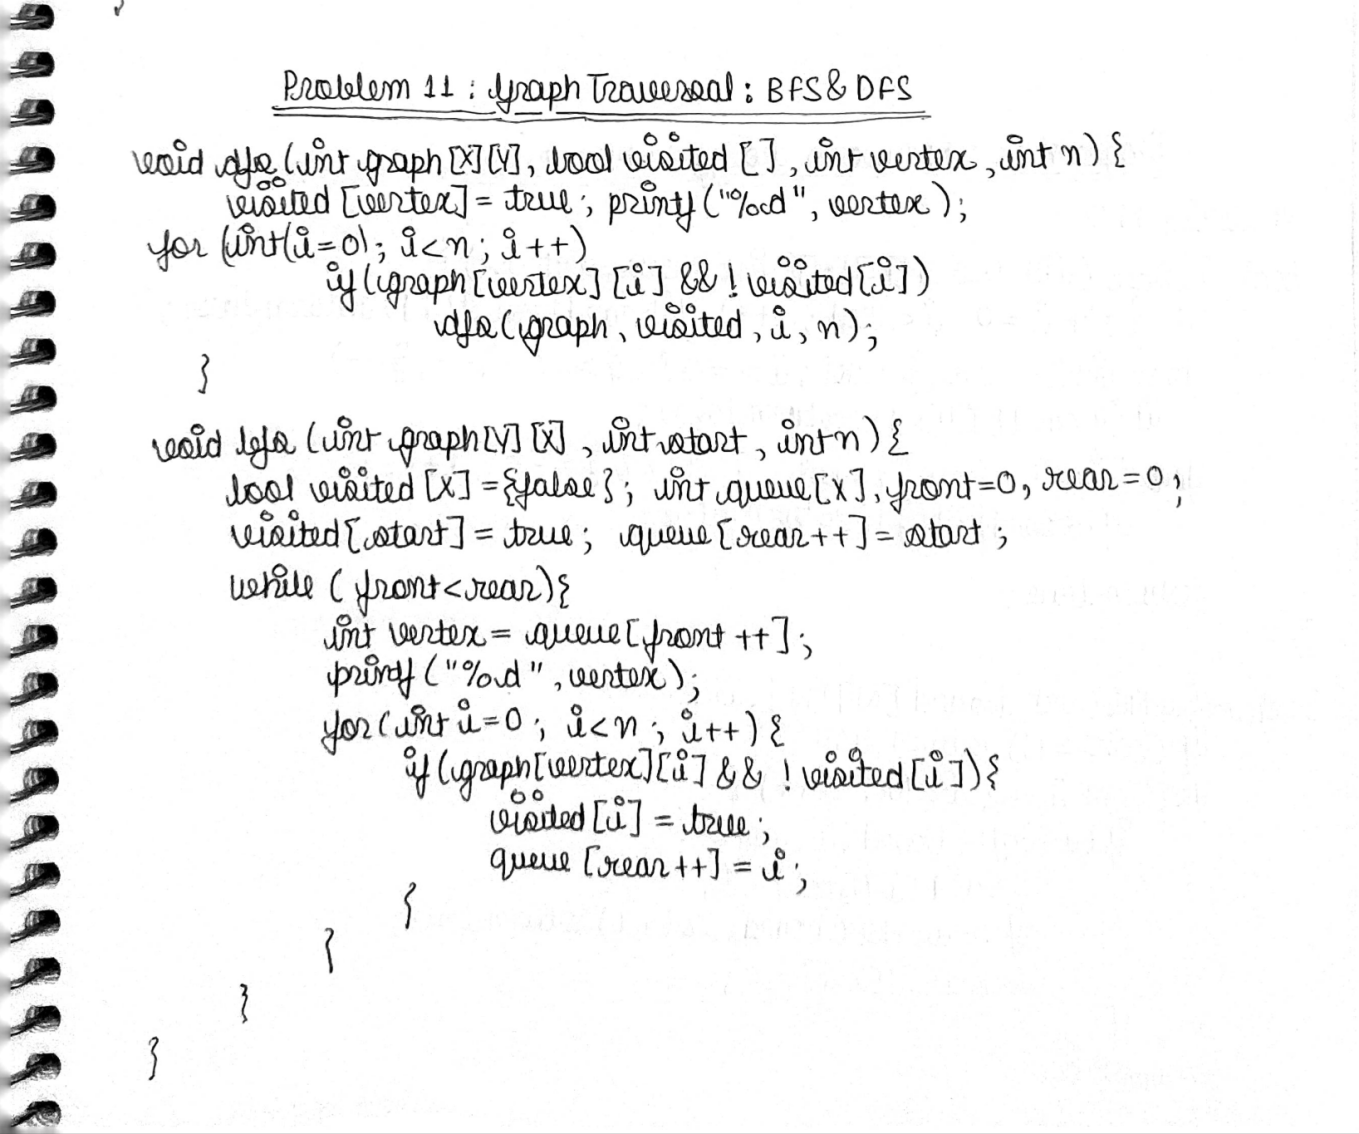 Problem 11 : Graph Traversal : BFS & DFS
void dfs (int graph [X][Y], bool visited [ ], int vertex, int n) {
visited [vertex] = true; printf ("%d", vertex);
for (int(i=0); i<n; i++)
if (graph[vertex][i] && ! visited[i])
dfs(graph, visited, i, n);
}
void bfs (int graph[Y][X], int start, int n) {
bool visited [X] = {false}; int queue[X], front=0, rear=0;
visited[start] = true; queue[rear++] = start;
while ( front<rear){
int vertex = queue[front ++];
printf ("%d", vertex);
for(int i=0; i<n; i++) {
if (graph[vertex][i] && ! visited[i]){
visited [i] = true;
queue [rear++] = i;
{
}
}
}